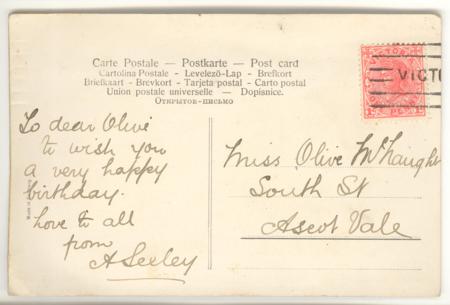 Carte Postale — Postkarte — Post card
Cartolina Postale - Levelező-Lap - Brefkort
Briefkaart - Brevkort - Tarjeta postal - Carto postal
Union postale universelle — Dopisnice.
Открытое-письмо
VICTORIA
ONE PENNY
VICTO
To dear Olive
to wish you
a very happy
birthday.
love to all
from
A Seeley
Miss Olive McNaught
South St
Ascot Vale